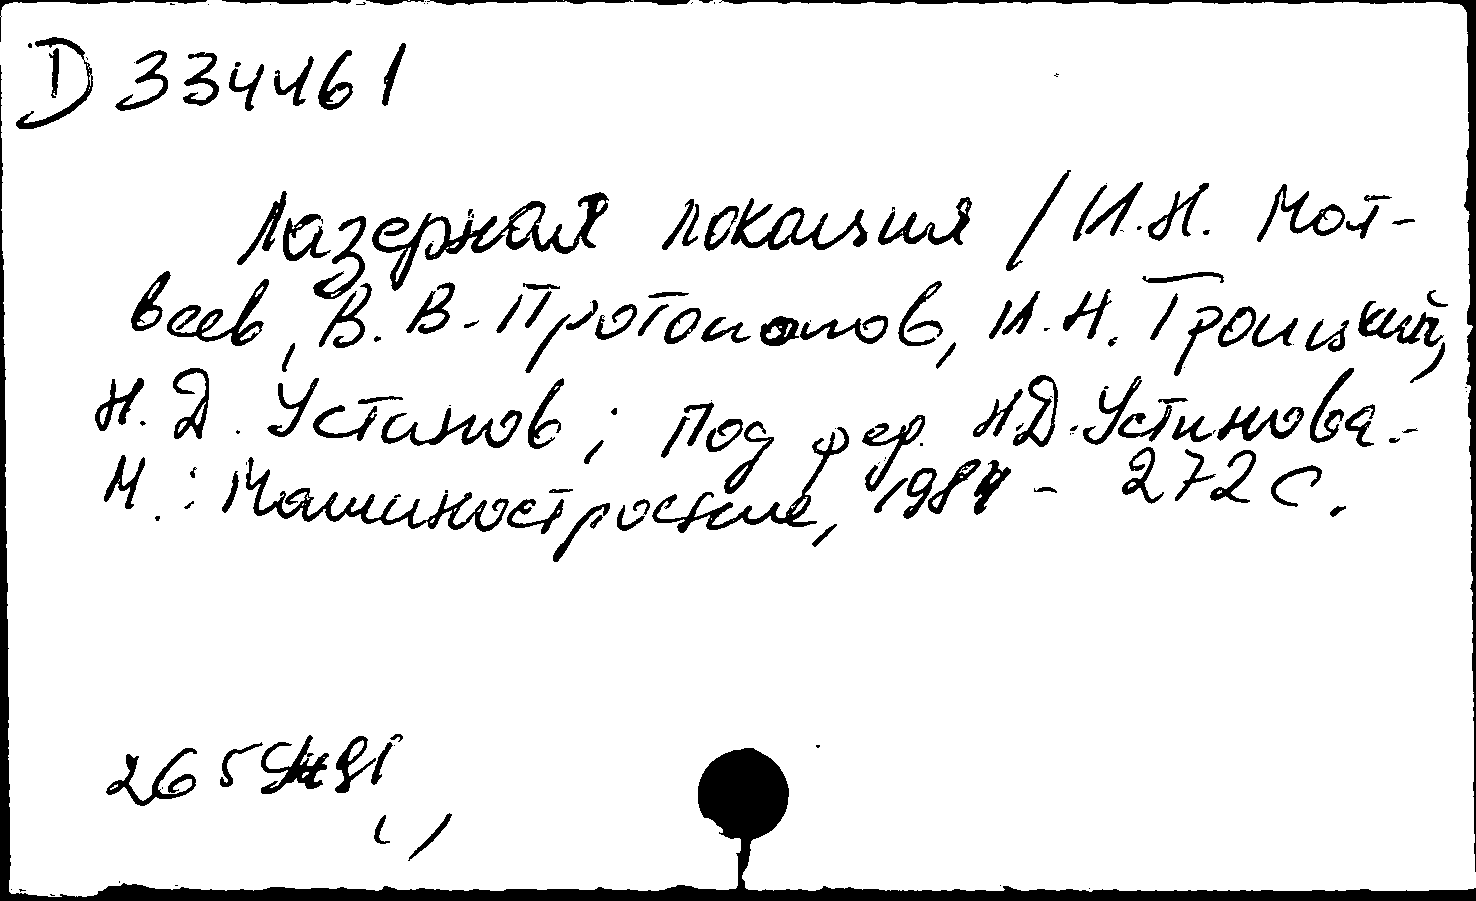 D 334461
Лазерная локация / И.Н. Мат-
веев, В.В. Протопопов, И.Н. Троицкий,
Н.Д. Устинов; Под ред. Н.Д. Устинова.-
М.: Машиностроение, 1984 - 272 с.